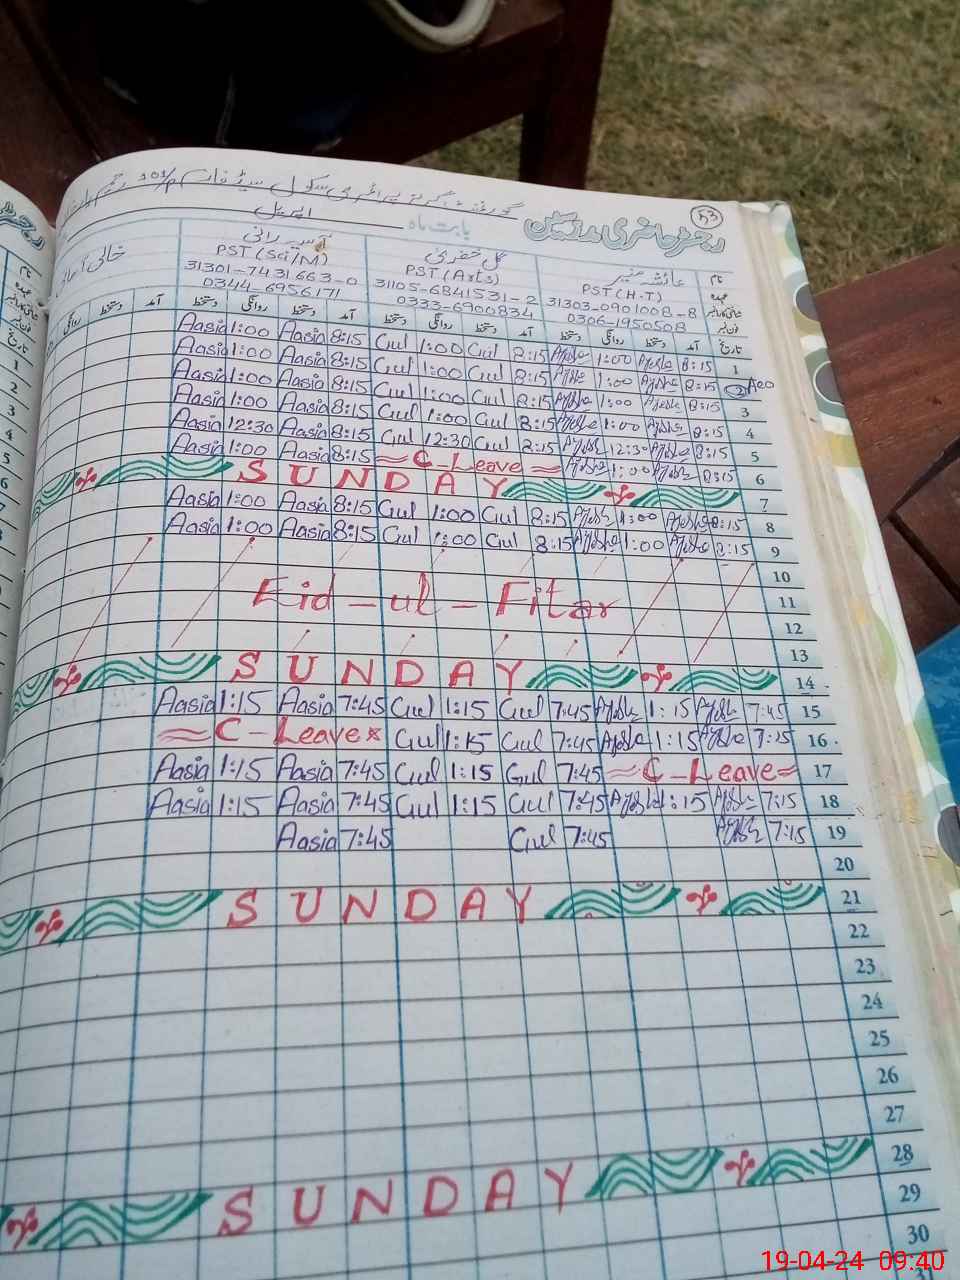 گورنمنٹ گرلز پرائمری سکول
53
رجسٹر حاضری مدرسین بابت ماہ اپریل
نام عائشہ منیر گل خضریٰ آسیہ رانی خالی
عہدہ PST (H.T) PST (Arts) PST (Sci/M)
31303-0901008-8 31105-6841531-2 31301-7431663-0
0306-1950508 0333-6900834 0344-6956171
تاریخ آمد دستخط روانگی دستخط آمد دستخط روانگی دستخط آمد دستخط روانگی دستخط آمد دستخط روانگی
Aasia 1:00 Aasia 8:15 Gul 1:00 Gul 8:15 Ayesha 1:00 Ayesha 8:15 1
Aasia 1:00 Aasia 8:15 Gul 1:00 Gul 8:15 Ayesha 1:00 Ayesha 8:15 2 Aeo
Aasia 1:00 Aasia 8:15 Gul 1:00 Gul 8:15 Ayesha 1:00 Ayesha 8:15 3
Aasia 1:00 Aasia 8:15 Gul 1:00 Gul 8:15 Ayesha 1:00 Ayesha 8:15 4
Aasia 12:30 Aasia 8:15 Gul 12:30 Gul 8:15 Ayesha 12:30 Ayesha 8:15 5
Aasia 1:00 Aasia 8:15 C-Leave Ayesha 1:00 Ayesha 8:15 6
SUNDAY 7
Aasia 1:00 Aasia 8:15 Gul 1:00 Gul 8:15 Ayesha 1:00 Ayesha 8:15 8
Aasia 1:00 Aasia 8:15 Gul 1:00 Gul 8:15 Ayesha 1:00 Ayesha 8:15 9
10
Eid-ul-Fitar 11
12
13
SUNDAY 14
Aasia 1:15 Aasia 7:45 Gul 1:15 Gul 7:45 Ayesha 1:15 Ayesha 7:45 15
C-Leave Gul 1:15 Gul 7:45 Ayesha 1:15 Ayesha 7:15 16
Aasia 1:15 Aasia 7:45 Gul 1:15 Gul 7:45 C-Leave 17
Aasia 1:15 Aasia 7:45 Gul 1:15 Gul 7:45 Ayesha 1:15 Ayesha 7:15 18
Aasia 7:45 Gul 7:45 Ayesha 7:15 19
20
SUNDAY 21
22
23
24
25
26
27
SUNDAY 28
29
30
19-04-24 09:40